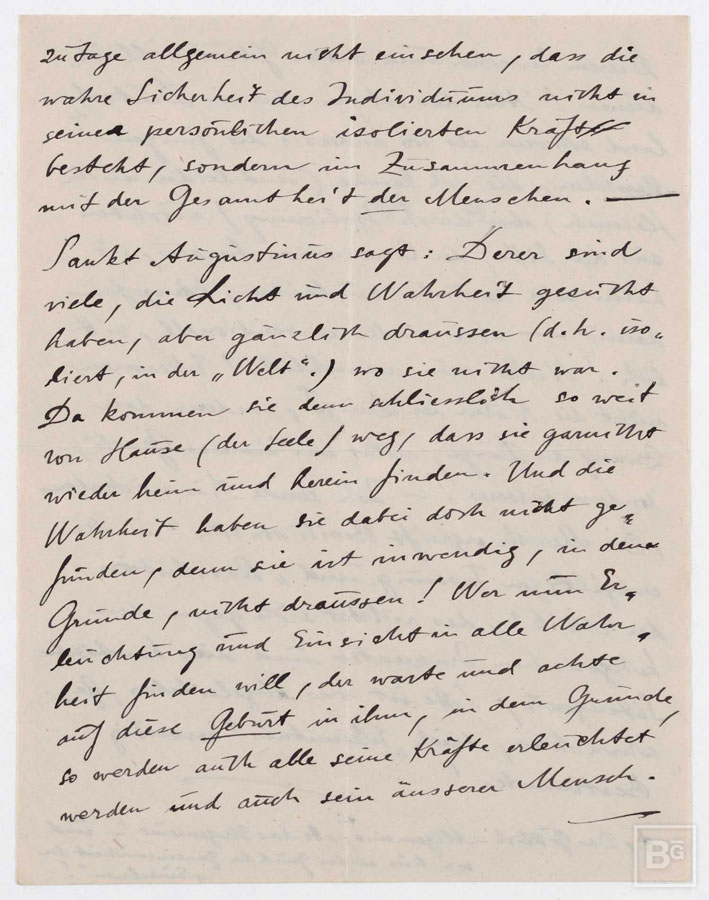 zutage allgemein nicht einsehen, dass die
wahre Sicherheit des Individuums nicht in
seinen persönlichen isolierten Kräften
besteht, sondern im Zusammenhang
mit der Gesamtheit der Menschen. —
Sankt Augustinus sagt: Derer sind
viele, die Licht und Wahrheit gesucht
haben, aber gänzlich draussen (d.h. iso„
liert, in der „Welt“.) wo sie nicht war.
Da kommen sie denn schliesslich so weit
von Hause (der Seele) weg, dass sie garnicht
wieder heim und herein finden. Und die
Wahrheit haben sie dabei doch nicht ge„
funden, denn sie ist inwendig, in dem
Grunde, nicht draussen! Wer nun Er„
leuchtung und Einsicht in alle Wahr„
heit finden will, der warte und achte
auf diese Geburt in ihm, in dem Grunde,
so werden auch alle seine Kräfte erleuchtet
werden und auch sein äusserer Mensch.
BG